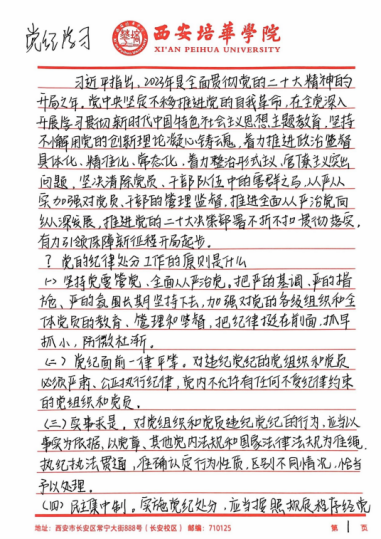 党纪学习
西安培華学院
XI'AN PEIHUA UNIVERSITY
习近平指出，2023年是全面贯彻党的二十大精神的
开局之年，党中央坚定不移推进党的自我革命，在全党深入
开展学习贯彻新时代中国特色社会主义思想主题教育，坚持
不懈用党的创新理论凝心铸魂，着力推进政治监督
具体化、精准化、常态化，着力整治形式主义、官僚主义突出
问题，坚决清除党员、干部队伍中的害群之马，从严从
实加强对党员、干部的管理监督，推进全面从严治党向
纵深发展，推进党的二十大决策部署不折不扣贯彻落实，
有力引领保障新征程开局起步。
? 党的纪律处分工作的原则是什么
(一) 坚持党要管党、全面从严治党。把严的基调、严的措
施、严的氛围长期坚持下去，加强对党的各级组织和全
体党员的教育、管理和监督，把纪律挺在前面，抓早
抓小，防微杜渐。
(二) 党纪面前一律平等。对违纪党纪的党组织和党员
必须严肃、公正执行纪律，党内不允许有任何不受纪律约束
的党组织和党员。
(三) 实事求是。对党组织和党员违纪党纪的行为，应当以
事实为依据，以党章、其他党内法规和国家法律法规为准绳，
执纪执法贯通，准确认定行为性质，区别不同情况，恰当
予以处理。
(四) 民主集中制。实施党纪处分，应当按照规定程序经党
地址：西安市长安区常宁大街888号（长安校区） 邮编：710125
第 1 页